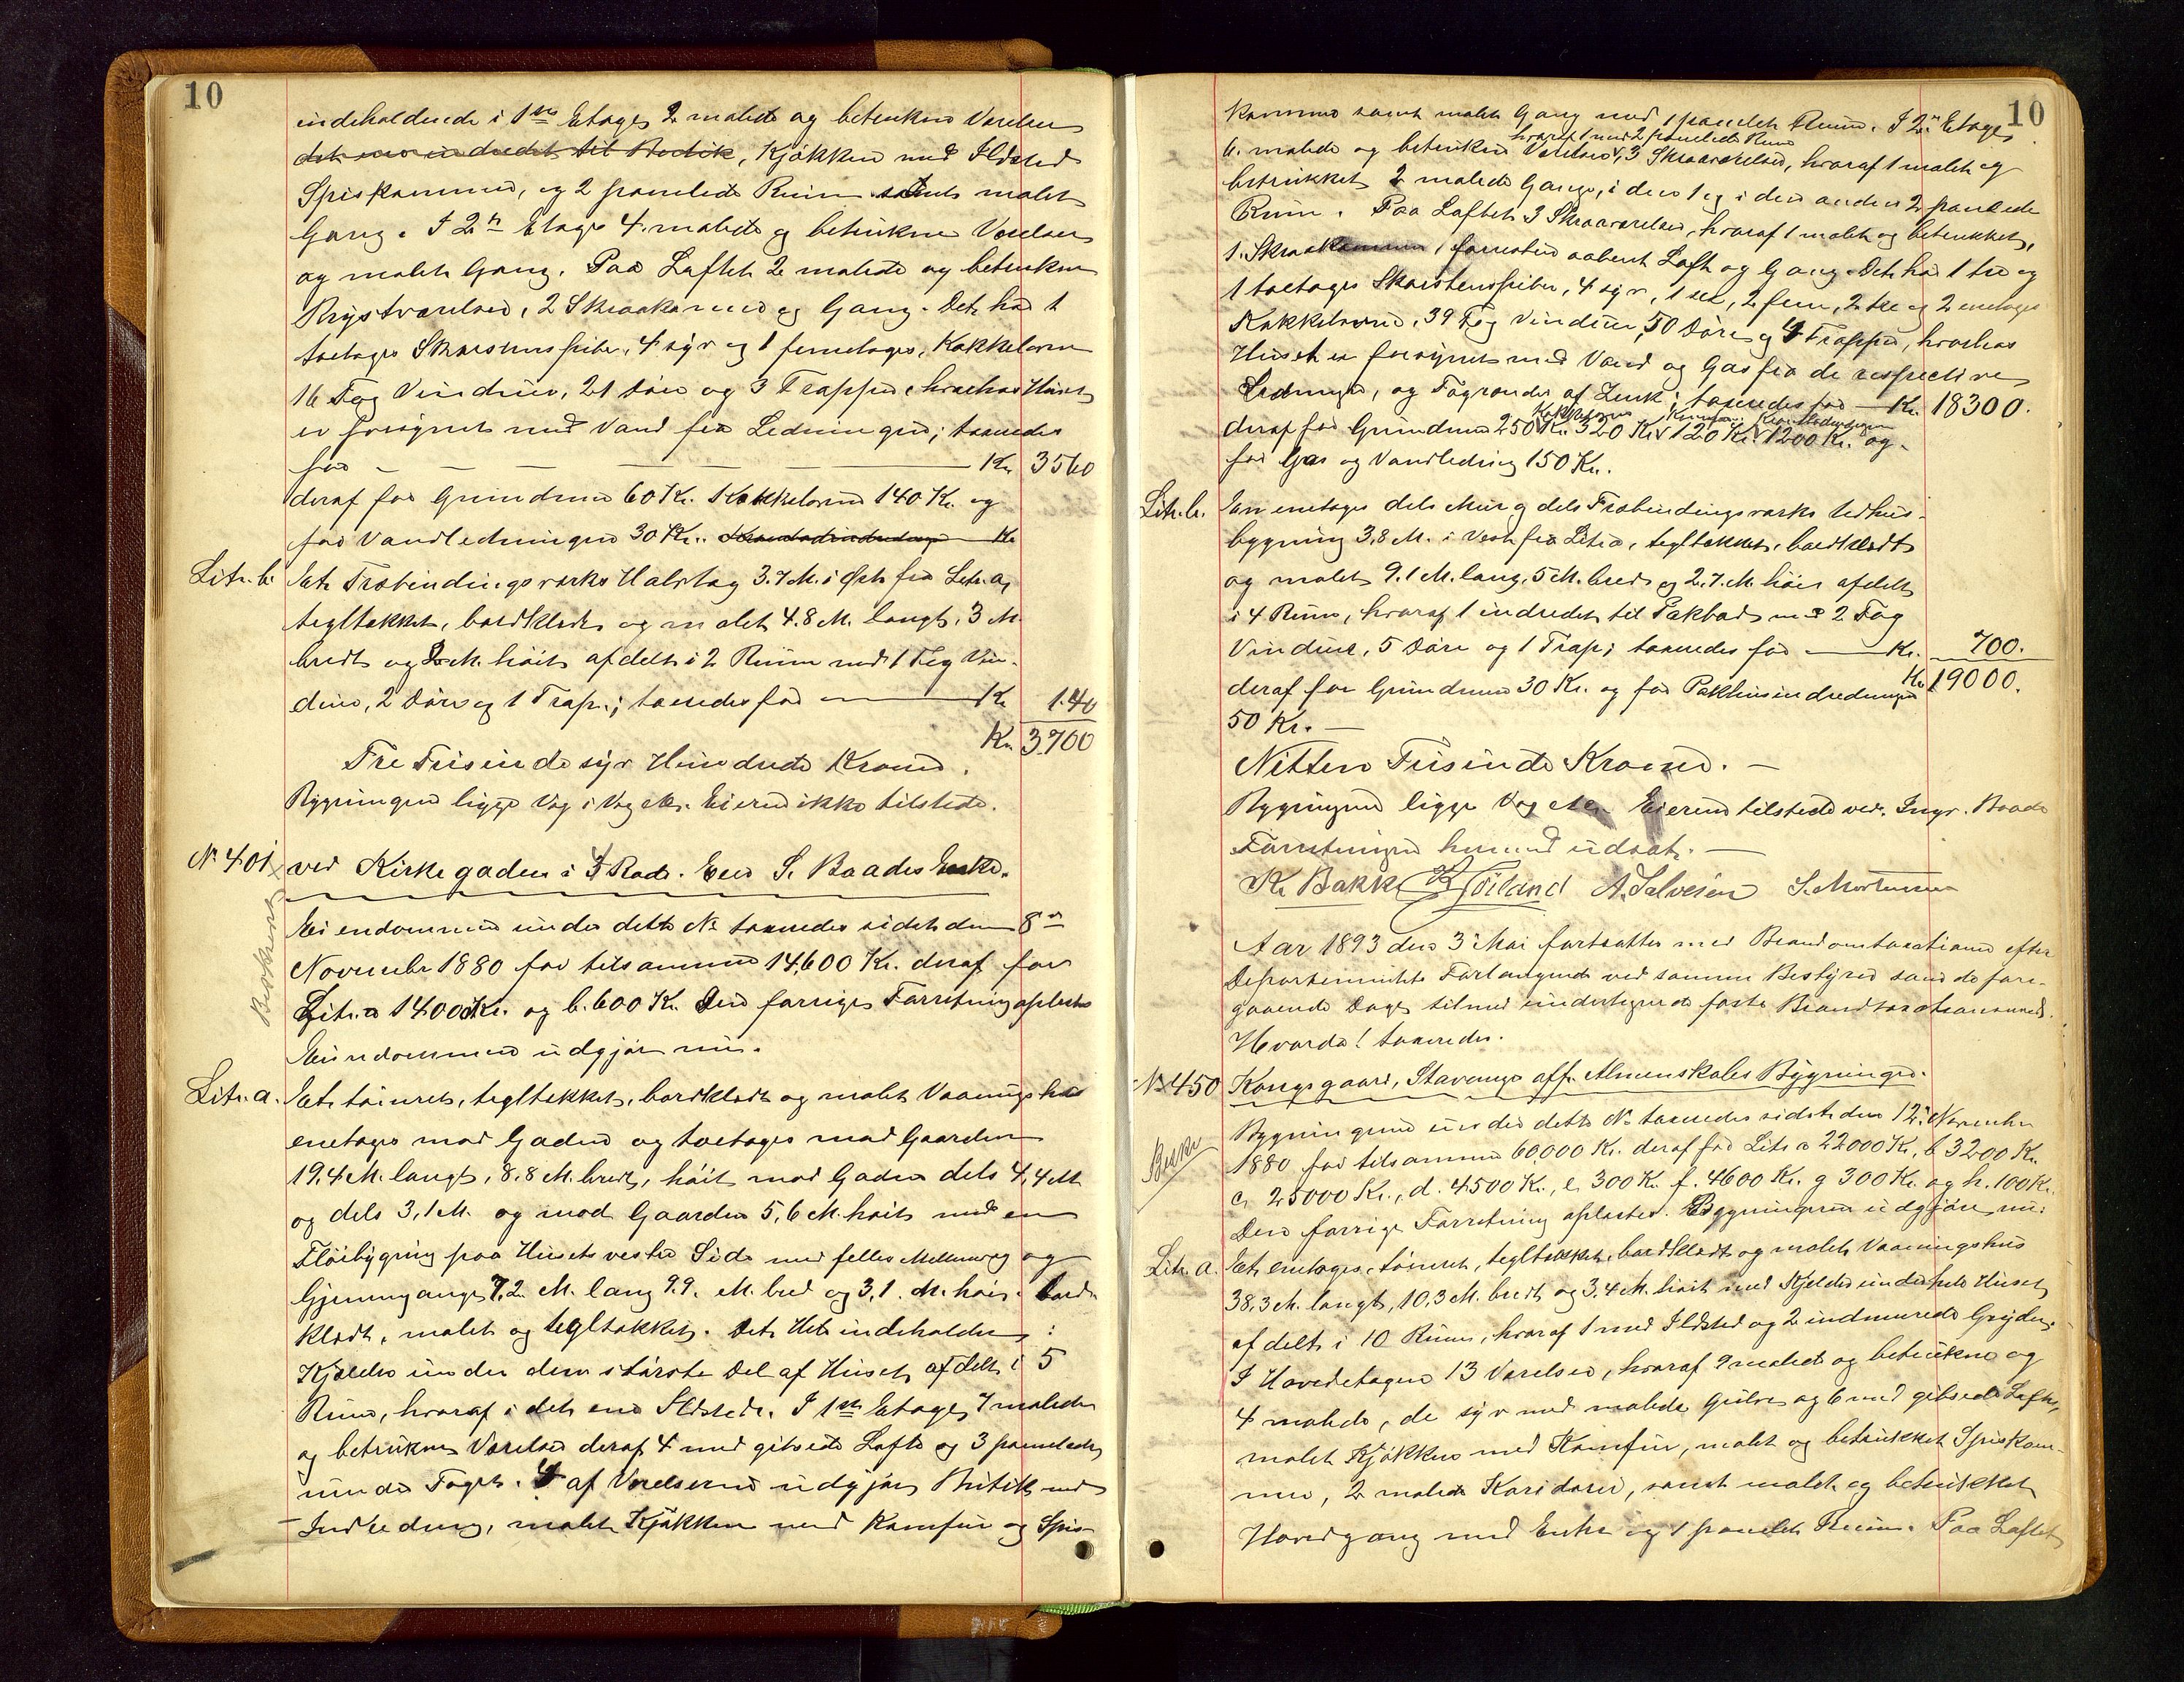 10
indeholdende i 1ste Etage 2 malede og betrukne Værelser
det ene indredet til Butik, Kjøkken med Ildsted
Spiskammer, og 2 panelede Rum samt malet
Gang. I 2n Etage 4 malede og betrukne Værelser
og malet Gang. Paa Loftet 2 malede og betrukne
Brystværelser, 2 Skraakamre og Gang. Det har 1
toetages Skorstenspibe, 4 syv og 1 femetages, Kakkelovne
16 Fag Vinduer, 21 Døre og 3 Trapper, hvorhos Huset
er forsynet med Vand fra Ledningen; taxeredes
for — — — — — Kr. 3560
deraf for Grundmur 60 Kr. Kakkelovne 140 Kr. og
for Vandledningen 30 Kr. Kr
Litr. b. Et Træbindingsværks Halvtag 3.7 M. i Øst fra Litr. a,
tegltækket, bordklædt og malet 4.8 M. langt, 3 M.
bredt og 2 M. høit afdelt i 2 Rum med 1 Fag Vin-
duer, 2 Døre og 1 Trap; taxeredes for — Kr 140
Kr. 3700
Tre Tusinde syv Hundrede Kroner.
Bygningen ligger Vaag i Vaag etc. Eieren ikke tilstede.
No 401 ved Kirkegaden i 4 Rode. Eier S. Baades Enke.
Beskrevet
Eiendommen under dette No taxeredes sidst den 8de
November 1880 for tilsammen 14,600 Kr. deraf for
Litr. a 14000 Kr. og b. 600 Kr. Den forrige Forretning oplæstes
Eiendommen udgjør nu.
Litr. a. Et tømret, tegltækket, bordklædt og malet Vaaningshus
enetages mod Gaden og toetages mod Gaarden
19,4 M. langt, 8,8 M. bredt, høit mod Gaden dels 4,4 M
og dels 3,1 M. og mod Gaarden 5,6 M. høit med en
Fløibygning paa Husets vestre Side med fælles Mellemvæg og
Gjennemgange 7,2 M. lang 9.9. M. bred og 3,1. M. høi. bord-
klædt, malet og tegltækket. Det Hele indeholder:
Kjælder under den største Del af Huset afdelt i 5
Rum, hvoraf i det ene Ildsted. I 1ste Etage 7 malede
og betrukne Værelser deraf 4 med gibsede Lofte og 3 panelede
under Taget. 4 af Værelserne udgjør Butik med
Indredning, malet Kjøkken med Komfur og Spis-
10
kammer samt malet Gang med 1 panelet Rum. I 2n Etage
hvoraf 1 med 2 panelede Rum
6. malede og betrukne Værelser, 3 Skraaværelser, hvoraf 1 malet og
betrukket 2 malede Gange, i den 1 og i den anden 2 panelede
Rum. Paa Loftet 3 Skraaværelser, hvoraf 1 malet og betrukket,
1. Skraakammer, forresten aabent Loft og Gang. Det har 1 tre og
1 toetages Skorstenspiber, 4 syv, 1 sex, 2 fem, 2 tre og 2 enetages
Kakkelovne, 39 Fag Vinduer, 50 Døre og 4 Trapper, hvorhos
Huset er forsynet med Vand og Gas fra de respective
Ledninger, og Tagrender af Zink; taxeredes for — Kr. 18300.
Kakkelovne Komfur
deraf for Grundmur 250 Kr. 320 Kr. 120 Kr. 1200 Kr. og
for Gas og Vandledning 150 Kr.
Litr. b. En enetages dels Mur og dels Træbindingsværks Udhus-
bygning 3,8 M. i Vest fra Litr. a, tegltækket, bordklædt
og malet 9.1 M. lang, 5 M. bred og 2.7. M. høi afdelt
i 4 Rum, hvoraf 1 indredet til Pakbod med 2 Fag
Vinduer, 5 Døre og 1 Trap; taxeredes for — Kr. 700.
deraf for Grundmur 30 Kr. og for Pakhusindredningen Kr 19000.
50 Kr. —
Nitten Tusinde Kroner. —
Bygningen ligger Vaag etc. Eieren tilstede ved. Ingv. Baade
Forretningen hermed udsat. —
K. Bakke K Høiland A. Salvesen S. Mortensen
Aar 1893 den 3 Mai fortsattes med Brandomtaxationen efter
Departementets Forlangende ved samme Bestyrer som de fore-
gaaende Dage tilmed undertegnede faste Brandtaxationsmænd.
Hvorda! taxeredes.
No 450 Kongsgaard, Stavanger off. Almenskoles Bygninger.
Beskr
Bygningerne under dette No taxeredes sidst den 12. November
1880 for tilsammen 60,000 Kr. deraf for Litr a 22000 Kr., b 3200 Kr.
c. 25000 Kr., d. 4500 Kr., e. 300 Kr. f. 4600 Kr. g 300 Kr. og h. 100 Kr.
Den forrige Forretning oplæstes. Bygningerne udgjøre nu:
Litr. a. Et enetages, tømret, tegltækket, bordklædt og malet Vaaningshus
38,3 M. langt, 10,3 M. bredt og 3,4 M. høit med Kjelder under hele Huset
afdelt i 10 Rum, hvoraf 1 med Ildsted og 2 indmurede Gryder.
I Hovedetagen 13 Værelser, hvoraf 9 malede og betrukne og
4 malede, de syv med malede Gulve og 6 med gibsede Lofte,
malet Kjøkken med Komfur, malet og betrukket Spiskam-
mer, 2 malede Koridorer, samt malet og betrukket
Hovedgang med Entre og 1 panelet Rum. Paa Loftet